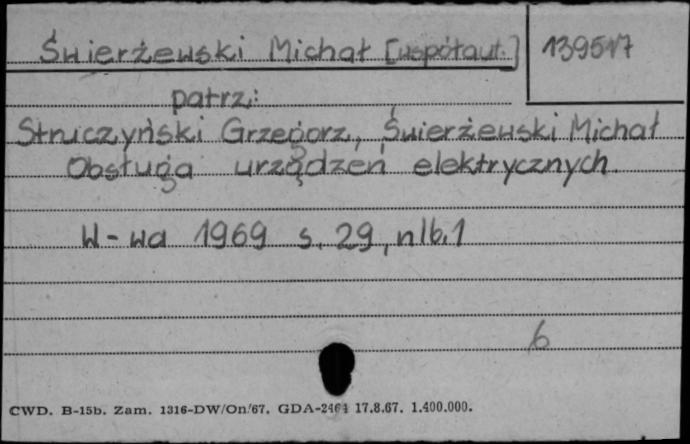 Świerżewski Michał [współaut.] 139517
patrz:
Struczyński Grzegorz, Świerżewski Michał
Obsługa urządzeń elektrycznych.
W-wa 1969 s. 29, nlb. 1
6
CWD. B-15b. Zam. 1316-DW/On/67. GDA-2464 17.8.67. 1.400.000.